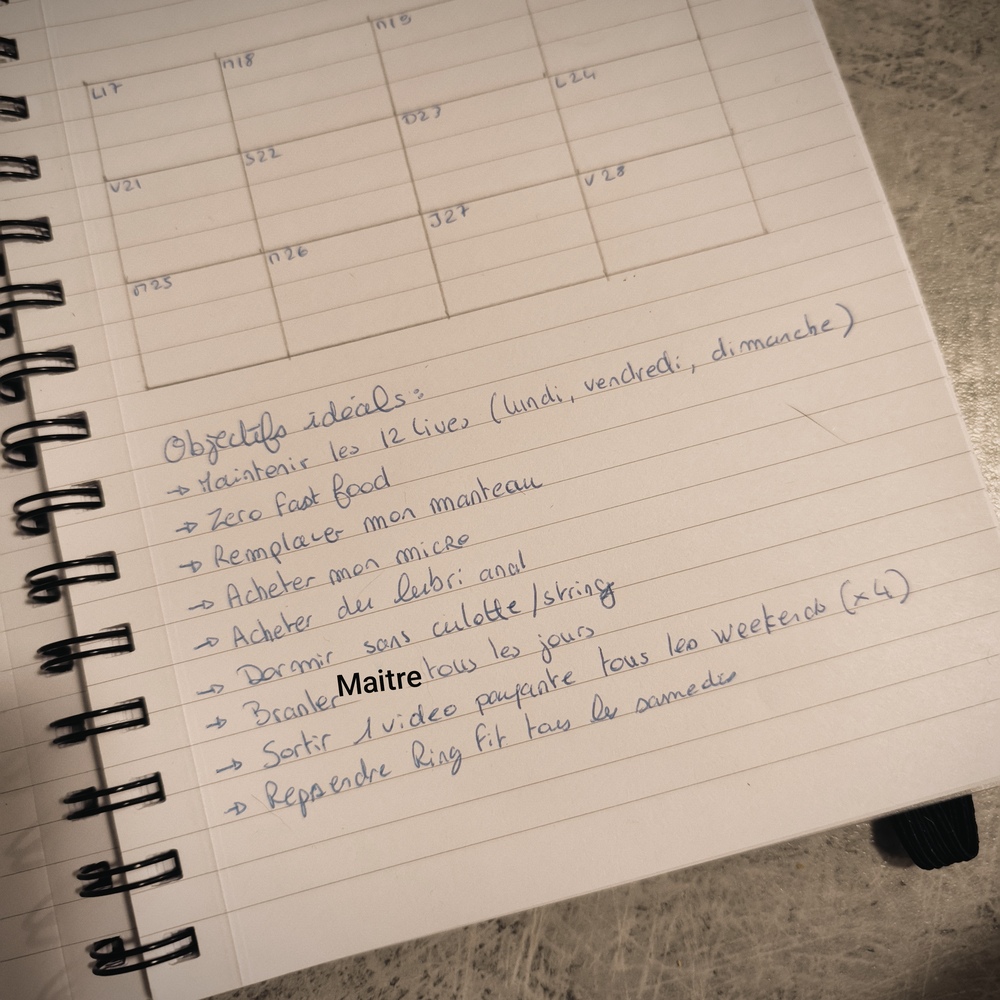 M19
M18
L17
L24
D23
S22
V21
V28
J27
M26
M25
Objectifs idéals :
→ Maintenir les 12 lives (lundi, vendredi, dimanche)
→ Zero fast food
→ Remplacer mon manteau
→ Acheter mon micro
→ Acheter du lubri anal
→ Dormir sans culotte/string
→ Branler Maitre tous les jours
→ Sortir 1 video payante tous les weekends (x4)
→ Reprendre Ring Fit tous les samedis